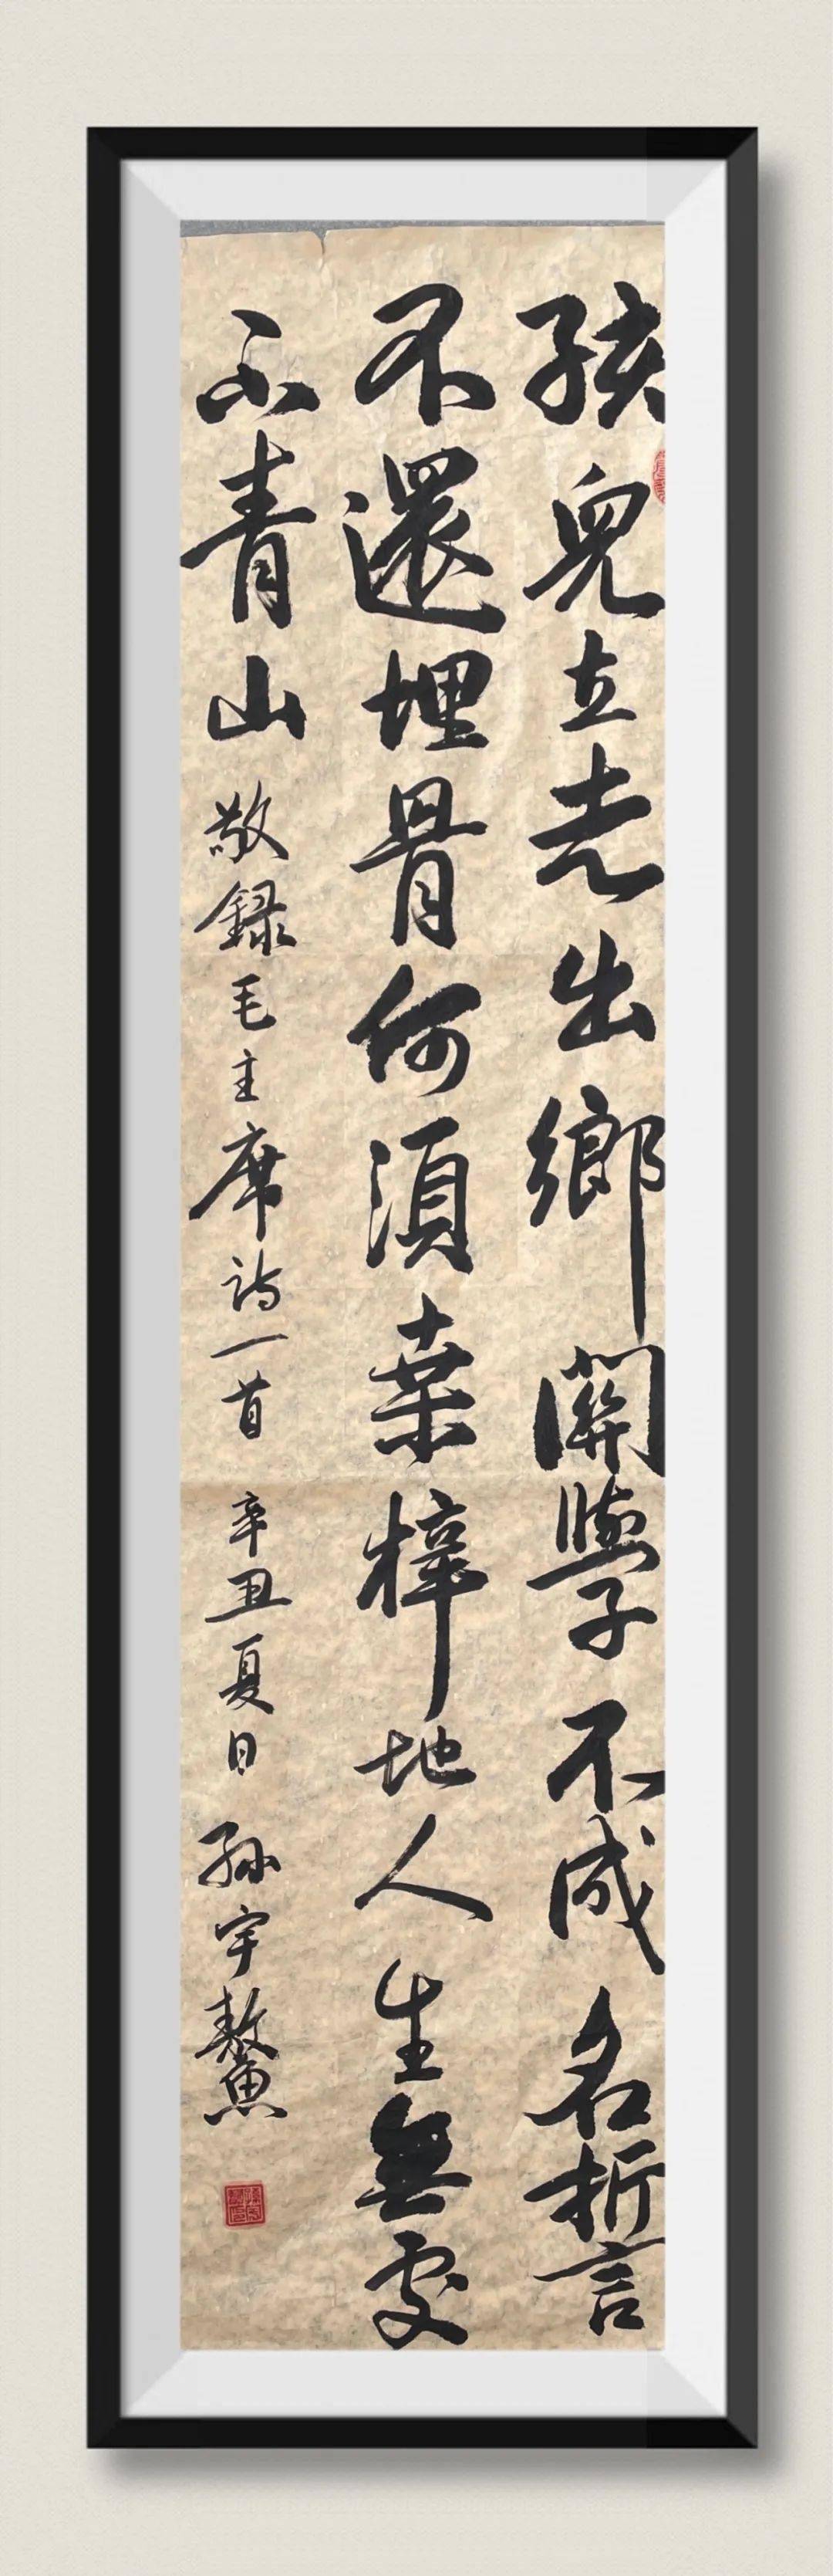 孩兒立志出鄉關學不成名誓
不還埋骨何須桑梓地人生無處
不青山 敬録毛主席詩一首 辛丑夏日 孙宇鰲